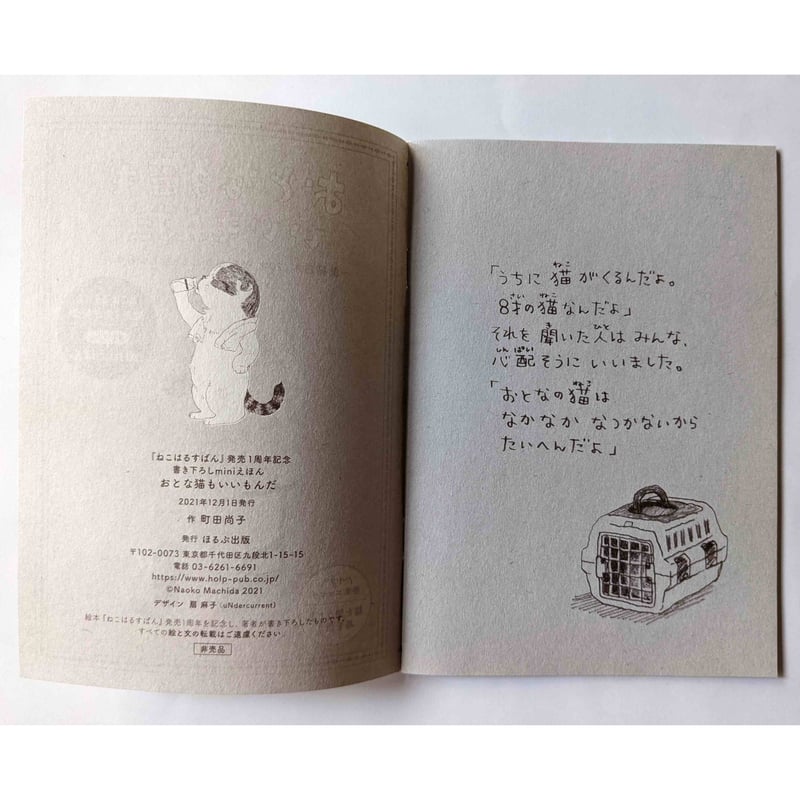 「ねこはるすばん」発売1周年記念
書き下ろしminiえほん
おとな猫もいいもんだ
2021年12月1日発行
作 町田尚子
発行 ほるぷ出版
〒102-0073 東京都千代田区九段北1-15-15
電話 03-6261-6691
https://www.holp-pub.co.jp/
©Naoko Machida 2021
デザイン 扇 麻子(uNdercurrent)
絵本「ねこはるすばん」発売1周年を記念し、著者が書き下ろしたものです。
すべての絵と文の転載はご遠慮ください。
非売品
「うちに 猫がくるんだよ。
8才の猫なんだよ」
それを 聞いた人は みんな、
心配そうに いいました。
「おとなの猫は
なかなか なつかないから
たいへんだよ」